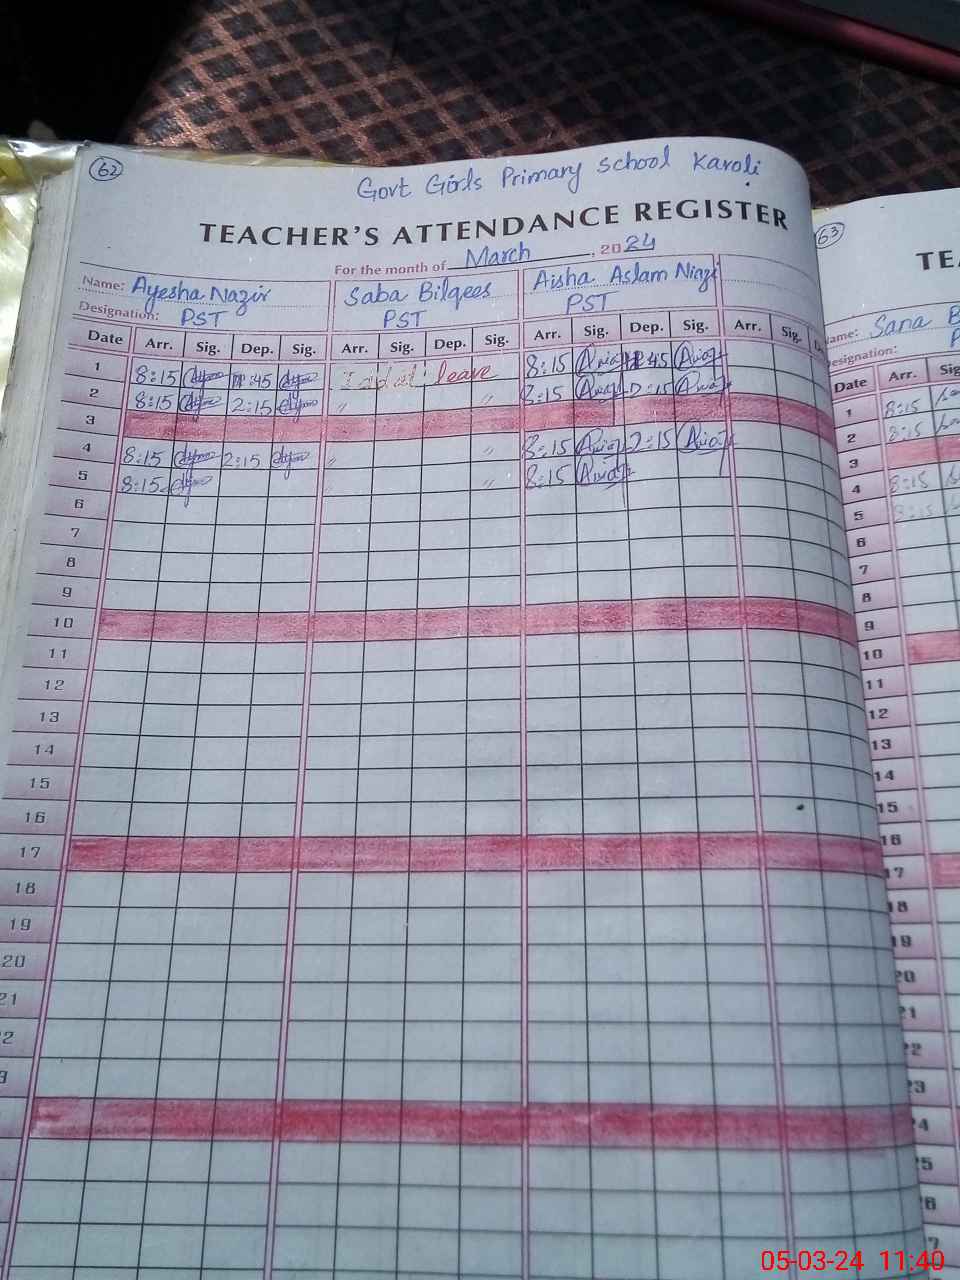 62
Govt Girls Primary School Karoli
TEACHER'S ATTENDANCE REGISTER
For the month of March, 2024
Name: Ayesha Nazir Saba Bilqees Aisha Aslam Niazi
Designation: PST PST PST
Date Arr. Sig. Dep. Sig. Arr. Sig. Dep. Sig. Arr. Sig. Dep. Sig. Arr. Sig.
1 8:15 :45 leave 8:15 :45
2 8:15 2:15 " " 8:15 2:15
3
4 8:15 2:15 " " 8:15 2:15
5 8:15 " " 8:15
6
7
8
9
10
11
12
13
14
15
16
17
18
19
20
21
2
3
63
TE
ame: Sana B
esignation: P
Date Arr. Sig
1 8:15
2 8:15
3
4 8:15
5 8:15
6
7
8
9
10
11
12
13
14
15
16
17
18
19
20
21
22
23
4
5
6
7
05-03-24 11:40